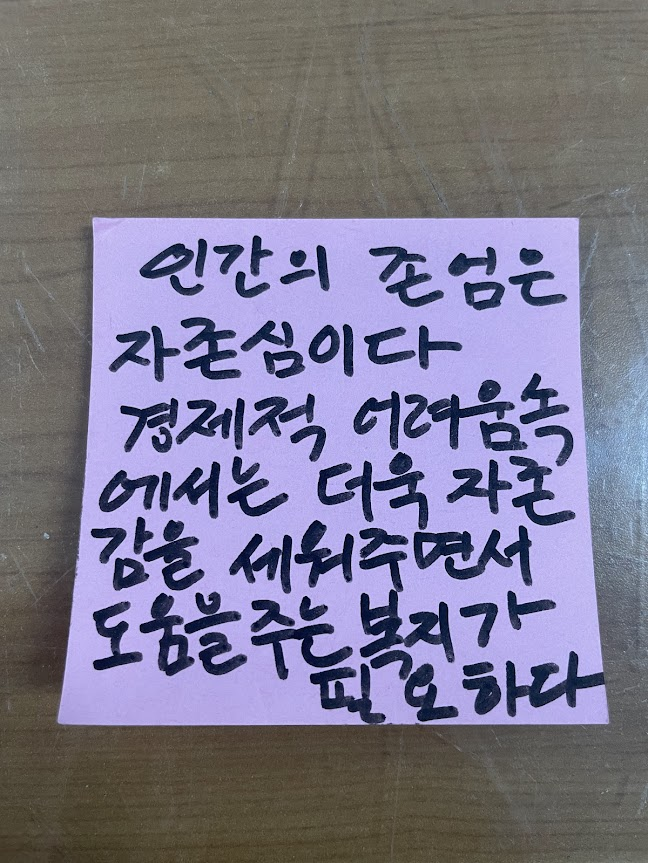 인간의 존엄은
자존심이다
경제적 어려움속
에서는 더욱 자존
감을 세워주면서
도움을주는 복지가
필요하다